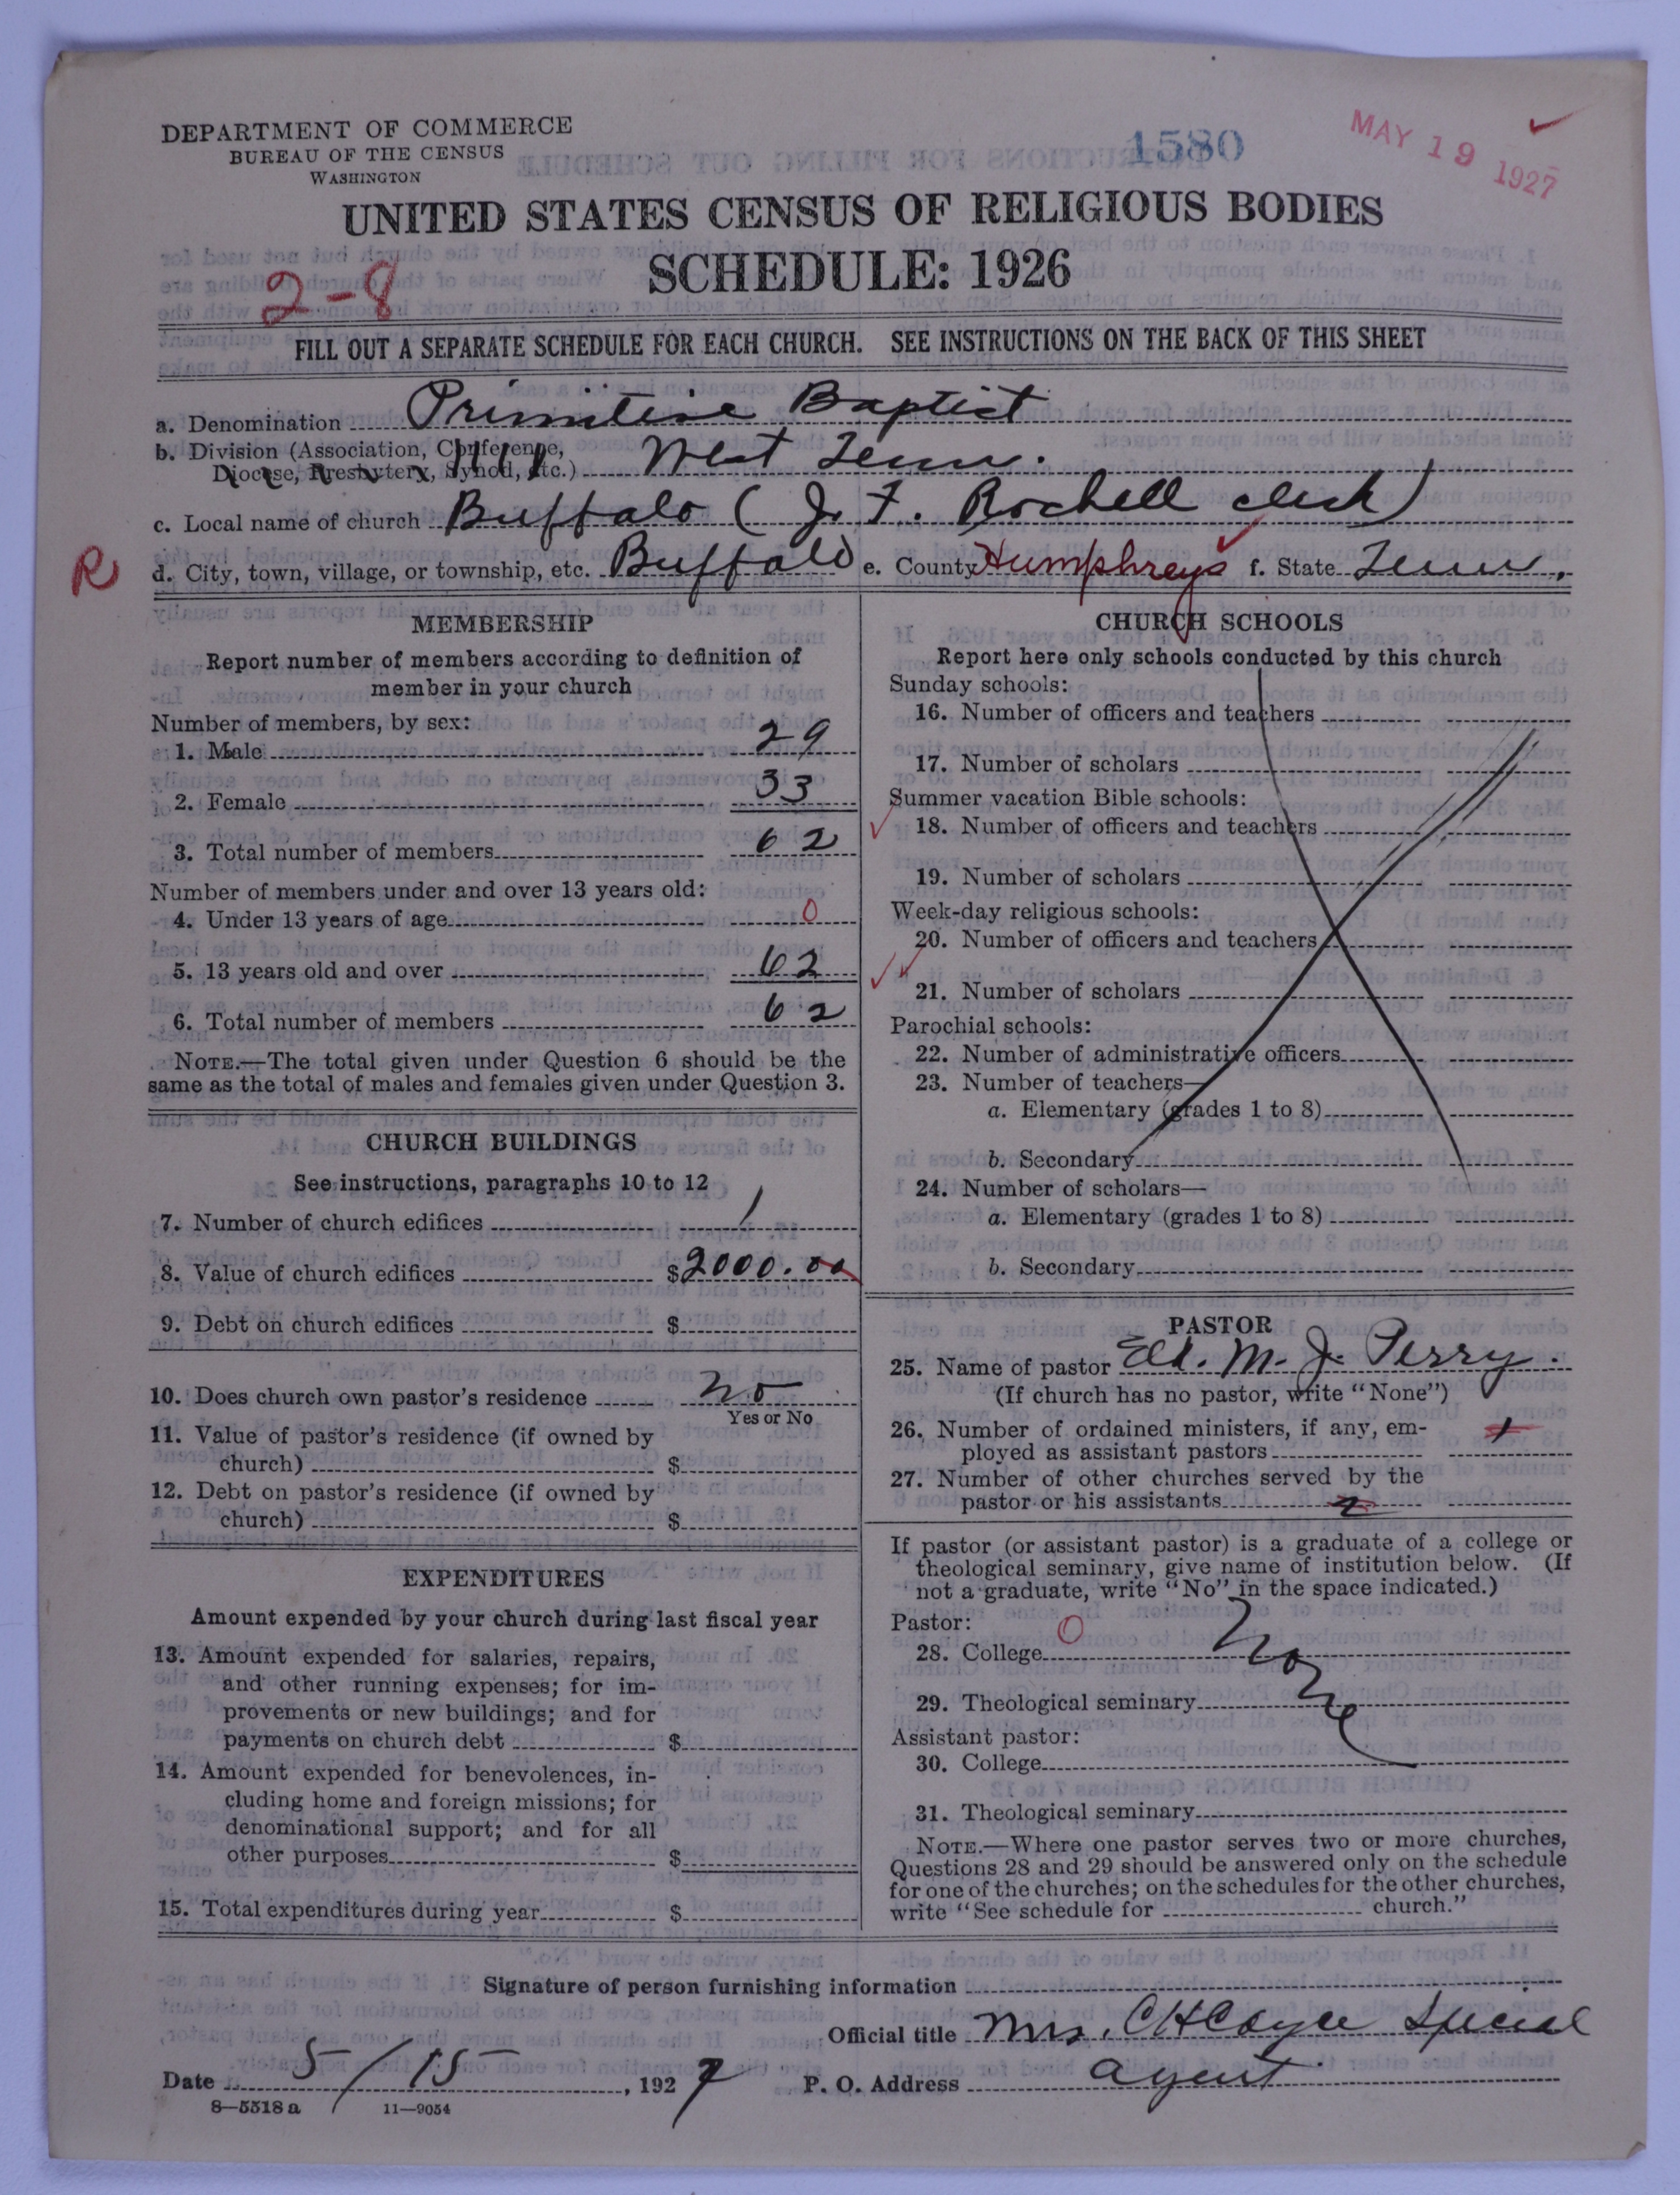 DEPARTMENT OF COMMERCE
BUREAU OF THE CENSUS
WASHINGTON
1580
MAY 19 1927
UNITED STATES CENSUS OF RELIGIOUS BODIES
SCHEDULE: 1926
2-8
FILL OUT A SEPARATE SCHEDULE FOR EACH CHURCH. SEE INSTRUCTIONS ON THE BACK OF THIS SHEET
a. Denomination Primitive Baptist
b. Division (Association, Conference,
Diocese, Presbytery, Synod, etc.) West Tenn.
c. Local name of church Buffalo (J. F. Rochell clerk)
R
d. City, town, village, or township, etc. Buffalo e. County Humphreys f. State Tenn.
MEMBERSHIP
Report number of members according to definition of
member in your church
Number of members, by sex:
1. Male 29
2. Female 33
3. Total number of members 62
Number of members under and over 13 years old:
4. Under 13 years of age 0
5. 13 years old and over 62
6. Total number of members 62
NOTE.—The total given under Question 6 should be the
same as the total of males and females given under Question 3.
CHURCH BUILDINGS
See instructions, paragraphs 10 to 12
7. Number of church edifices 1
8. Value of church edifices $2000.00
9. Debt on church edifices $
10. Does church own pastor's residence no
Yes or No
11. Value of pastor's residence (if owned by
church) $
12. Debt on pastor's residence (if owned by
church) $
EXPENDITURES
Amount expended by your church during last fiscal year
13. Amount expended for salaries, repairs,
and other running expenses; for im-
provements or new buildings; and for
payments on church debt $
14. Amount expended for benevolences, in-
cluding home and foreign missions; for
denominational support; and for all
other purposes $
15. Total expenditures during year $
CHURCH SCHOOLS
Report here only schools conducted by this church
Sunday schools:
16. Number of officers and teachers
17. Number of scholars
Summer vacation Bible schools:
18. Number of officers and teachers
19. Number of scholars
Week-day religious schools:
20. Number of officers and teachers
21. Number of scholars
Parochial schools:
22. Number of administrative officers
23. Number of teachers—
a. Elementary (grades 1 to 8)
b. Secondary
24. Number of scholars—
a. Elementary (grades 1 to 8)
b. Secondary
PASTOR
25. Name of pastor Eld. M. J. Perry.
(If church has no pastor, write "None")
26. Number of ordained ministers, if any, em-
ployed as assistant pastors 1
27. Number of other churches served by the
pastor or his assistants 2
If pastor (or assistant pastor) is a graduate of a college or
theological seminary, give name of institution below. (If
not a graduate, write "No" in the space indicated.)
Pastor: 0
28. College None
29. Theological seminary
Assistant pastor:
30. College
31. Theological seminary
NOTE.—Where one pastor serves two or more churches,
Questions 28 and 29 should be answered only on the schedule
for one of the churches; on the schedules for the other churches,
write "See schedule for church."
Signature of person furnishing information
Official title Mrs. C H Cayce Special
Date 5/15, 1927 P. O. Address agent
8—5518a 11—9054